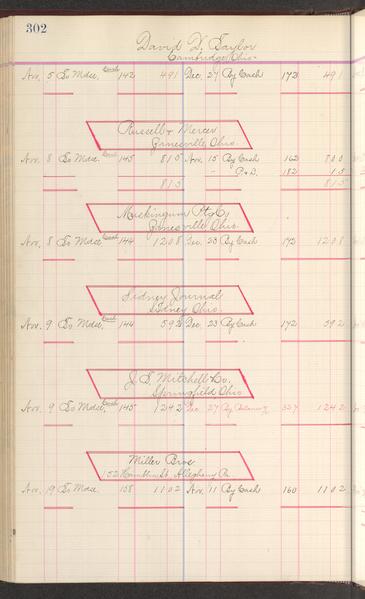 302
David D. Taylor
Cambridge, Ohio.
Nov. 5 To Mdse. 142 491 Dec. 27 By Cash 173 491
Russell & Mercer
Zanesville, Ohio.
Nov. 8 To Mdse. 145 815 Nov. 15 By Cash 162 800
" P. & D. 182 15
815 815
Muskingum Ptg Co
Zanesville, Ohio.
Nov. 8 To Mdse. 144 1208 Dec. 23 By Cash 172 1208
Sidney Journal
Sidney Ohio.
Nov. 9 To Mdse. 144 592 Dec. 23 By Cash 172 592
J. S. Mitchell & Co.
Springfield Ohio
Nov. 9 To Mdse. 145 1242 Dec 27 By Balance 327 1242
Miller Bros
152 St. Allegheny Pa
Nov. 19 To Mdse. 158 1102 Nov. 11 By Cash 160 1102